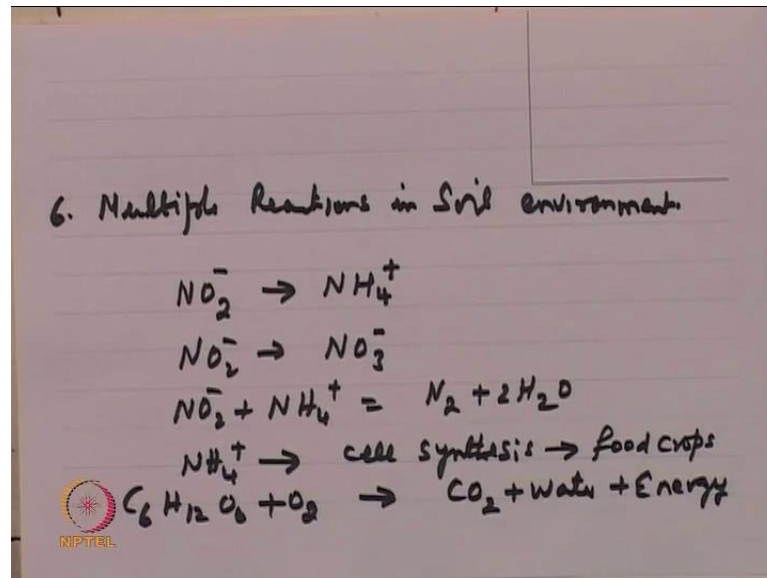 6. Multiple Reactions in Soil environment.
NO₂⁻ → NH₄⁺
NO₂⁻ → NO₃⁻
NO₂⁻ + NH₄⁺ = N₂ + 2H₂O
NH₄⁺ → cell synthesis → food crops
C₆H₁₂O₆ + O₂ → CO₂ + Water + Energy
NPTEL